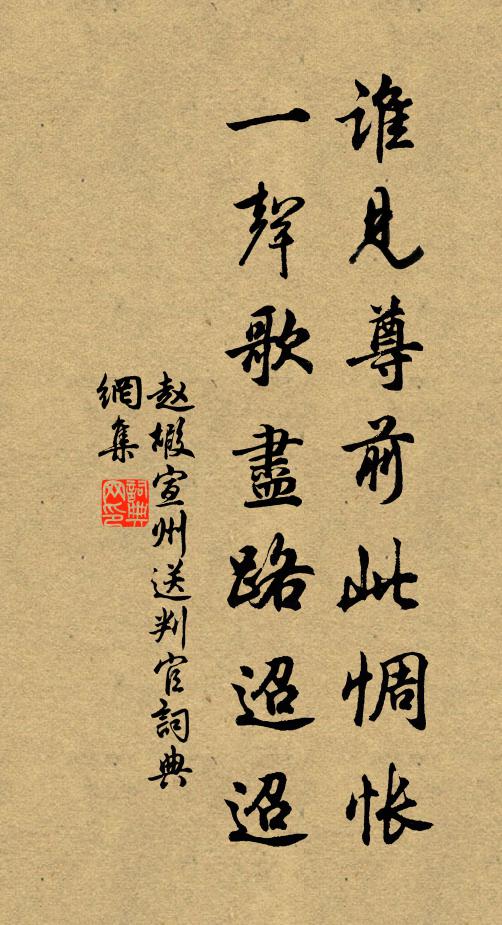 谁見尊前此惆怅
一聲歌盡路迢迢
赵嘏宣州送判官詞典
網集
詞典網印